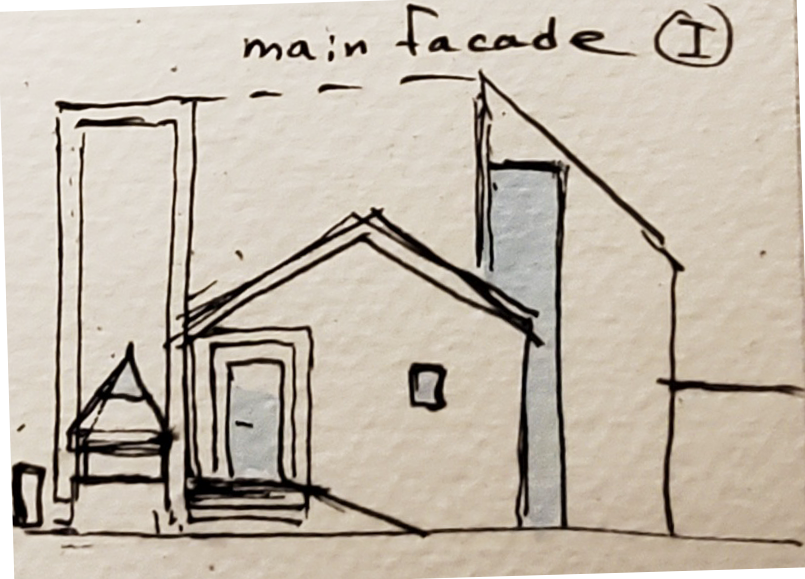 main facade I